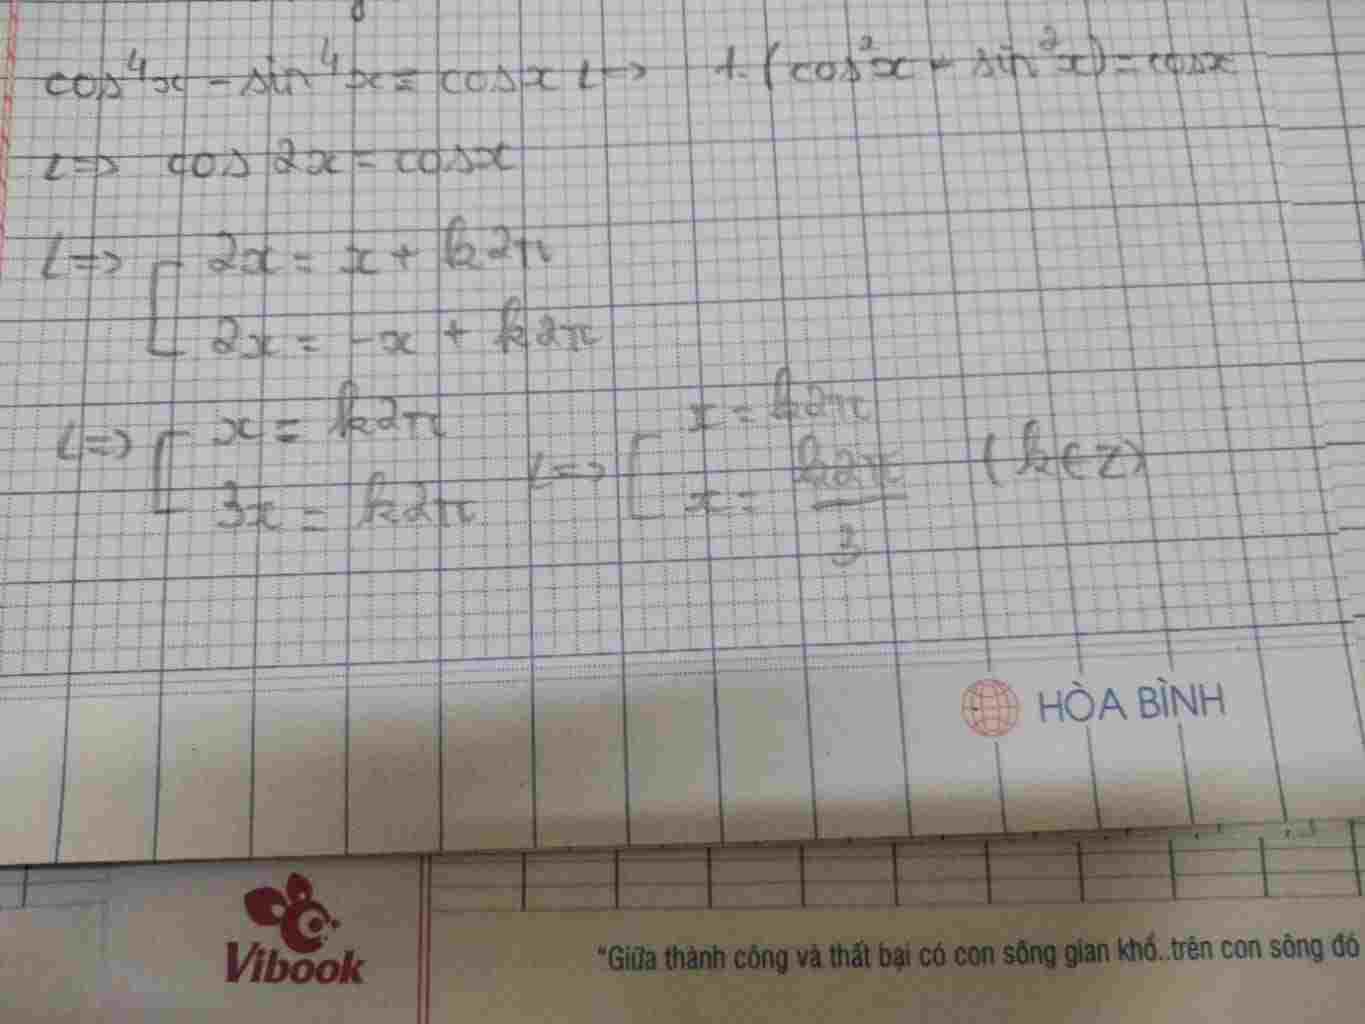 cos⁴x - sin⁴x = cosx <=> 1.(cos²x - sin²x) = cosx
<=> cos 2x = cosx
<=> [ 2x = x + k2π
2x = -x + k2π
<=> [ x = k2π <=> [ x = k2π
3x = k2π x = k2π/3 (k∈Z)
HÒA BÌNH
Vibook
"Giữa thành công và thất bại có con sông gian khổ..trên con sông đó